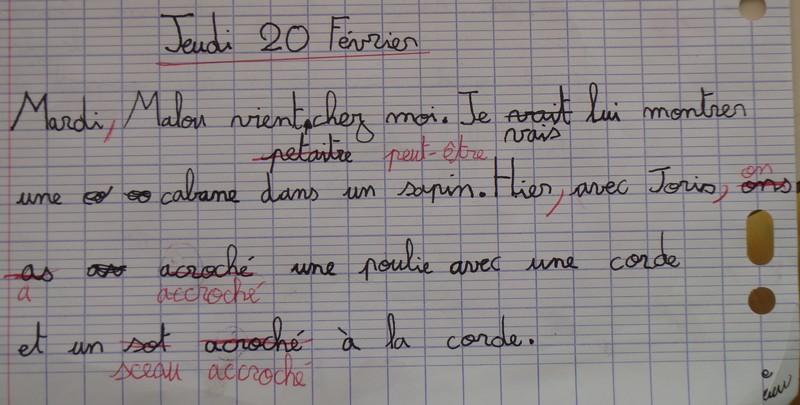 Jeudi 20 Février
Mardi, Malou vient chez moi. Je vrait lui montrer
petaitre peut-être vais
une cabane dans un sapin. Hier, avec Joris, ons
on
as acroché une poulie avec une corde
a accroché
et un sot acroché à la corde.
sceau accroché